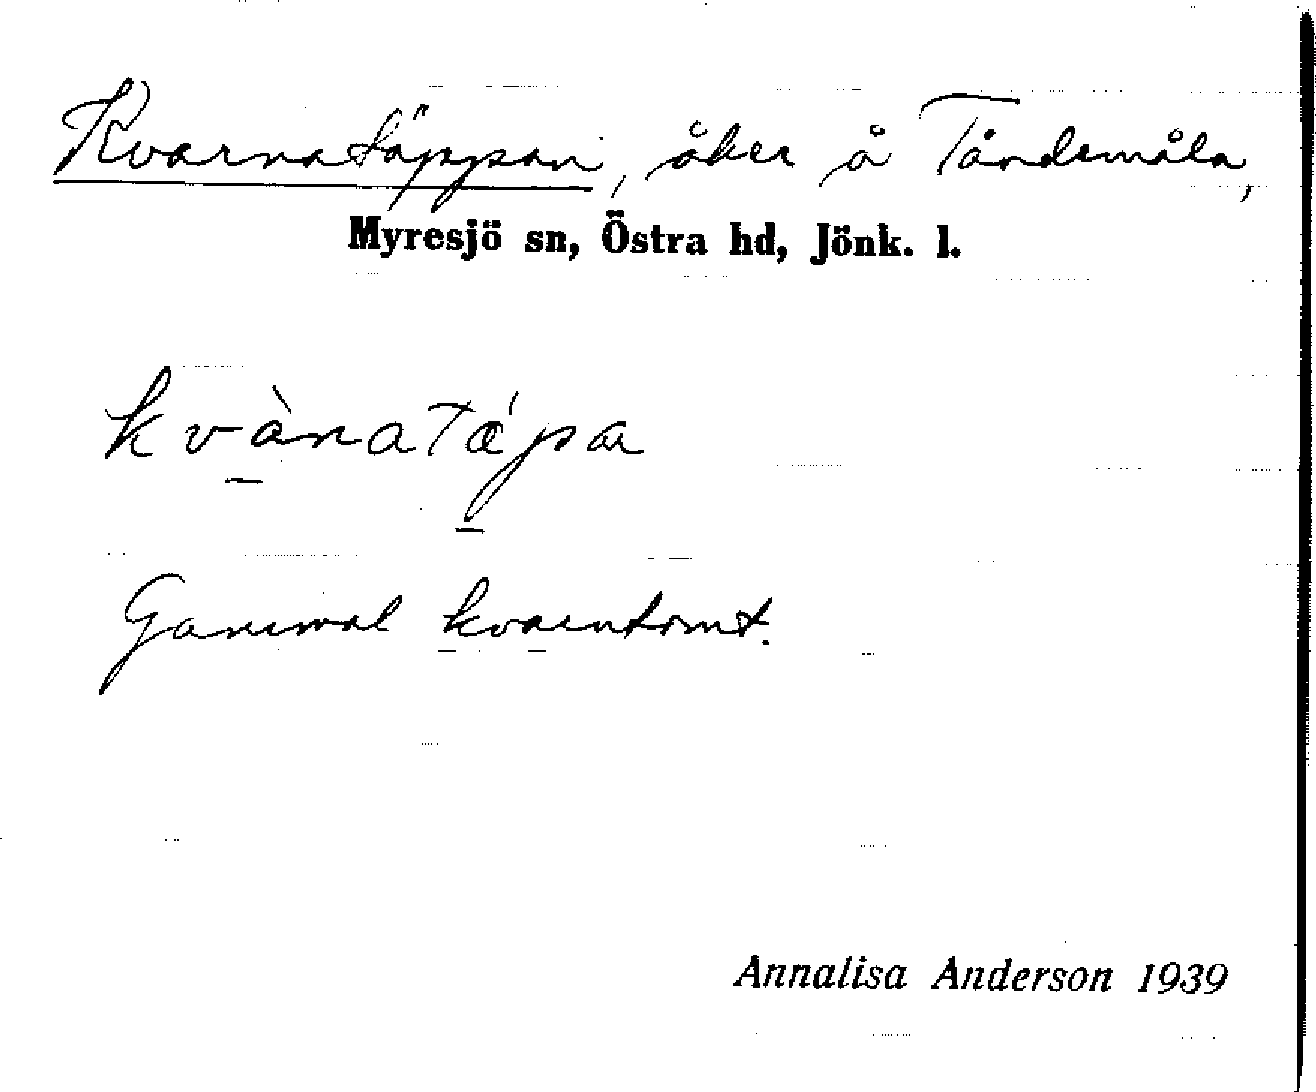 Kvarnatäppan, åker å Tåndemåla,
Myresjö sn, Östra hd, Jönk. l.
kvànatǽpa
Gammal kvarntomt.
Annalisa Anderson 1939